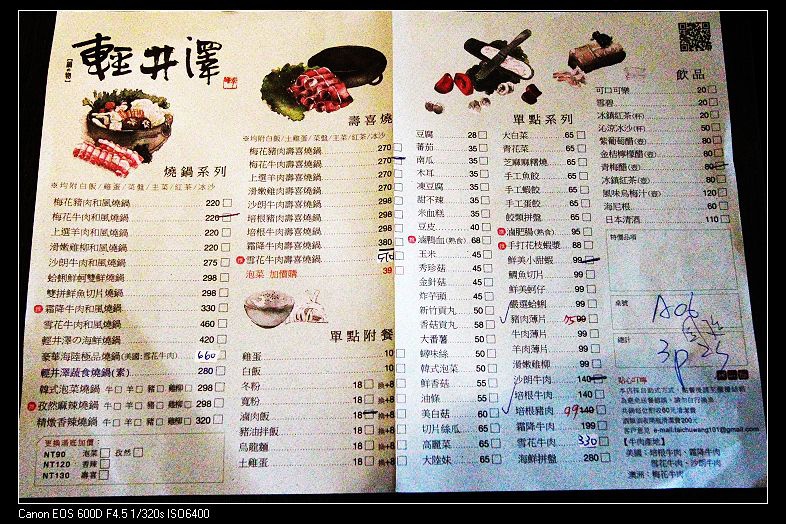 輕井澤
【鍋の物】
燒鍋系列
※均附白飯/雞蛋/菜盤/主菜/紅茶/冰沙
梅花豬肉和風燒鍋 220
梅花牛肉和風燒鍋 220
上選羊肉和風燒鍋 220
滑嫩雞柳和風燒鍋 220
沙朗牛肉和風燒鍋 275
蛤蜊鮮蚵雙鮮燒鍋 298
雙拼鮮魚切片燒鍋 298
霜降牛肉和風燒鍋 330
雪花牛肉和風燒鍋 460
輕井澤の海鮮燒鍋 420
豪華海陸極品燒鍋(美國:雪花牛肉) 660
輕井澤蔬食燒鍋(素) 280
韓式泡菜燒鍋 牛 羊 豬 雞柳 298
孜然麻辣燒鍋 牛 羊 豬 雞柳 298
精燉香辣燒鍋 牛 羊 豬 雞柳 320
更換湯底加價:
NT90 泡菜 孜然
NT120 香辣
NT130 壽喜
壽喜燒
※均附白飯/土雞蛋/菜盤/主菜/紅茶/冰沙
梅花豬肉壽喜燒鍋 270
梅花牛肉壽喜燒鍋 270
上選羊肉壽喜燒鍋 270
滑嫩雞肉壽喜燒鍋 270
沙朗牛肉壽喜燒鍋 298
培根豬肉壽喜燒鍋 298
培根牛肉壽喜燒鍋 298
霜降牛肉壽喜燒鍋 380
雪花牛肉壽喜燒鍋 510
泡菜 加價購 39
單點附餐
雞蛋
白飯
冬粉 18 換+8
寬粉 18 換+8
滷肉飯 18 換+8
豬油拌飯 18 換+8
烏龍麵 18 換+8
土雞蛋 18 換+8
單點系列
豆腐 28
番茄 35
南瓜 35
木耳 35
凍豆腐 35
甜不辣 35
米血糕 35
豆皮 40
滷鴨血(熟食) 68
玉米 45
秀珍菇 45
金針菇 45
炸芋頭 45
新竹貢丸 50
香菇貢丸 58
大番薯 50
蟳味絲 50
韓式泡菜 50
鮮香菇 55
油條 55
美白菇 60
切片絲瓜 65
高麗菜 65
大陸妹 65
大白菜 65
青花菜 65
芝麻麻糬燒 65
手工魚餃 65
手工蝦餃 65
手工蛋餃 65
餃類拼盤 65
滷肥腸(熟食) 95
手打花枝蝦漿 88
鮮美小甜蝦 99
鯛魚切片 99
鮮美蚵仔 99
嚴選蛤蜊 99
豬肉薄片 99
牛肉薄片 99
羊肉薄片 99
滑嫩雞柳 99
沙朗牛肉 140
培根牛肉 140
培根豬肉 99 140
霜降牛肉 199
雪花牛肉 330
海鮮拼盤 280
飲品
可口可樂 20
雪碧 20
冰鎮紅茶(杯) 20
沁涼冰沙(杯) 50
紫葡萄醋(壺) 80
金桔檸檬醋(壺) 80
青梅醋(壺) 80
冰鎮紅茶(壺) 80
風味烏梅汁(壺) 120
海尼根 60
日本清酒 110
特價品項
桌號
A06
總計
3p
貼心叮嚀
e-mail:taichuwang101@gmail.com
【牛肉產地】
美國:培根牛肉、霜降牛肉
雪花牛肉、沙朗牛肉
澳洲:梅花牛肉
Canon EOS 600D F4.5 1/320s ISO6400